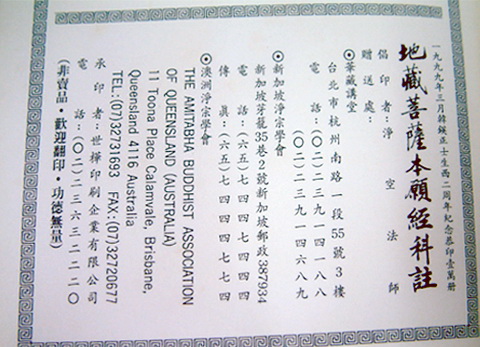 一九九九年三月韓鍈正士生西二周年紀念恭印壹萬册
地藏菩薩本願經科註
倡印者：淨空法師
贈送處：
◎華藏講堂
台北市杭州南路一段55號3樓
電話：(〇二)二三九一四一八八
(〇二)二三九一四六八九
◎新加坡淨宗學會
新加坡芽籠35巷2號新加坡郵政387934
電話：(六五)七四四七四四四
傳眞：(六五)七四四四七七四
◎澳洲淨宗學會
THE AMITABHA BUDDHIST ASSOCIATION
OF QUEENSLAND (AUSTRALIA)
11 Toona Place Calamvale, Brisbane,
Queensland 4116 Australia
TEL:(07)32731693 FAX:(07)32720677
承印者：世樺印刷企業有限公司
電話：(〇二)二三六三二二二〇
(非賣品・歡迎翻印・功德無量)